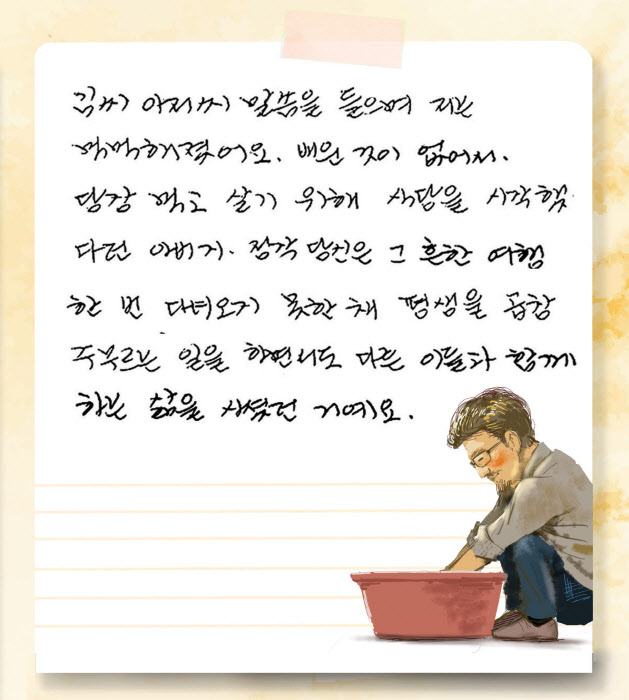 김씨 아저씨 말씀을 들으며 저는
먹먹해졌어요. 배운 것이 없어서.
당장 먹고 살기 위해 식당을 시작했
다던 아버지. 정작 당신은 그 흔한 여행
한 번 다녀오지 못한 채 평생을 곱창
주무르는 일을 하면서도 다른 이들과 함께
하는 삶을 사셨던 거예요.